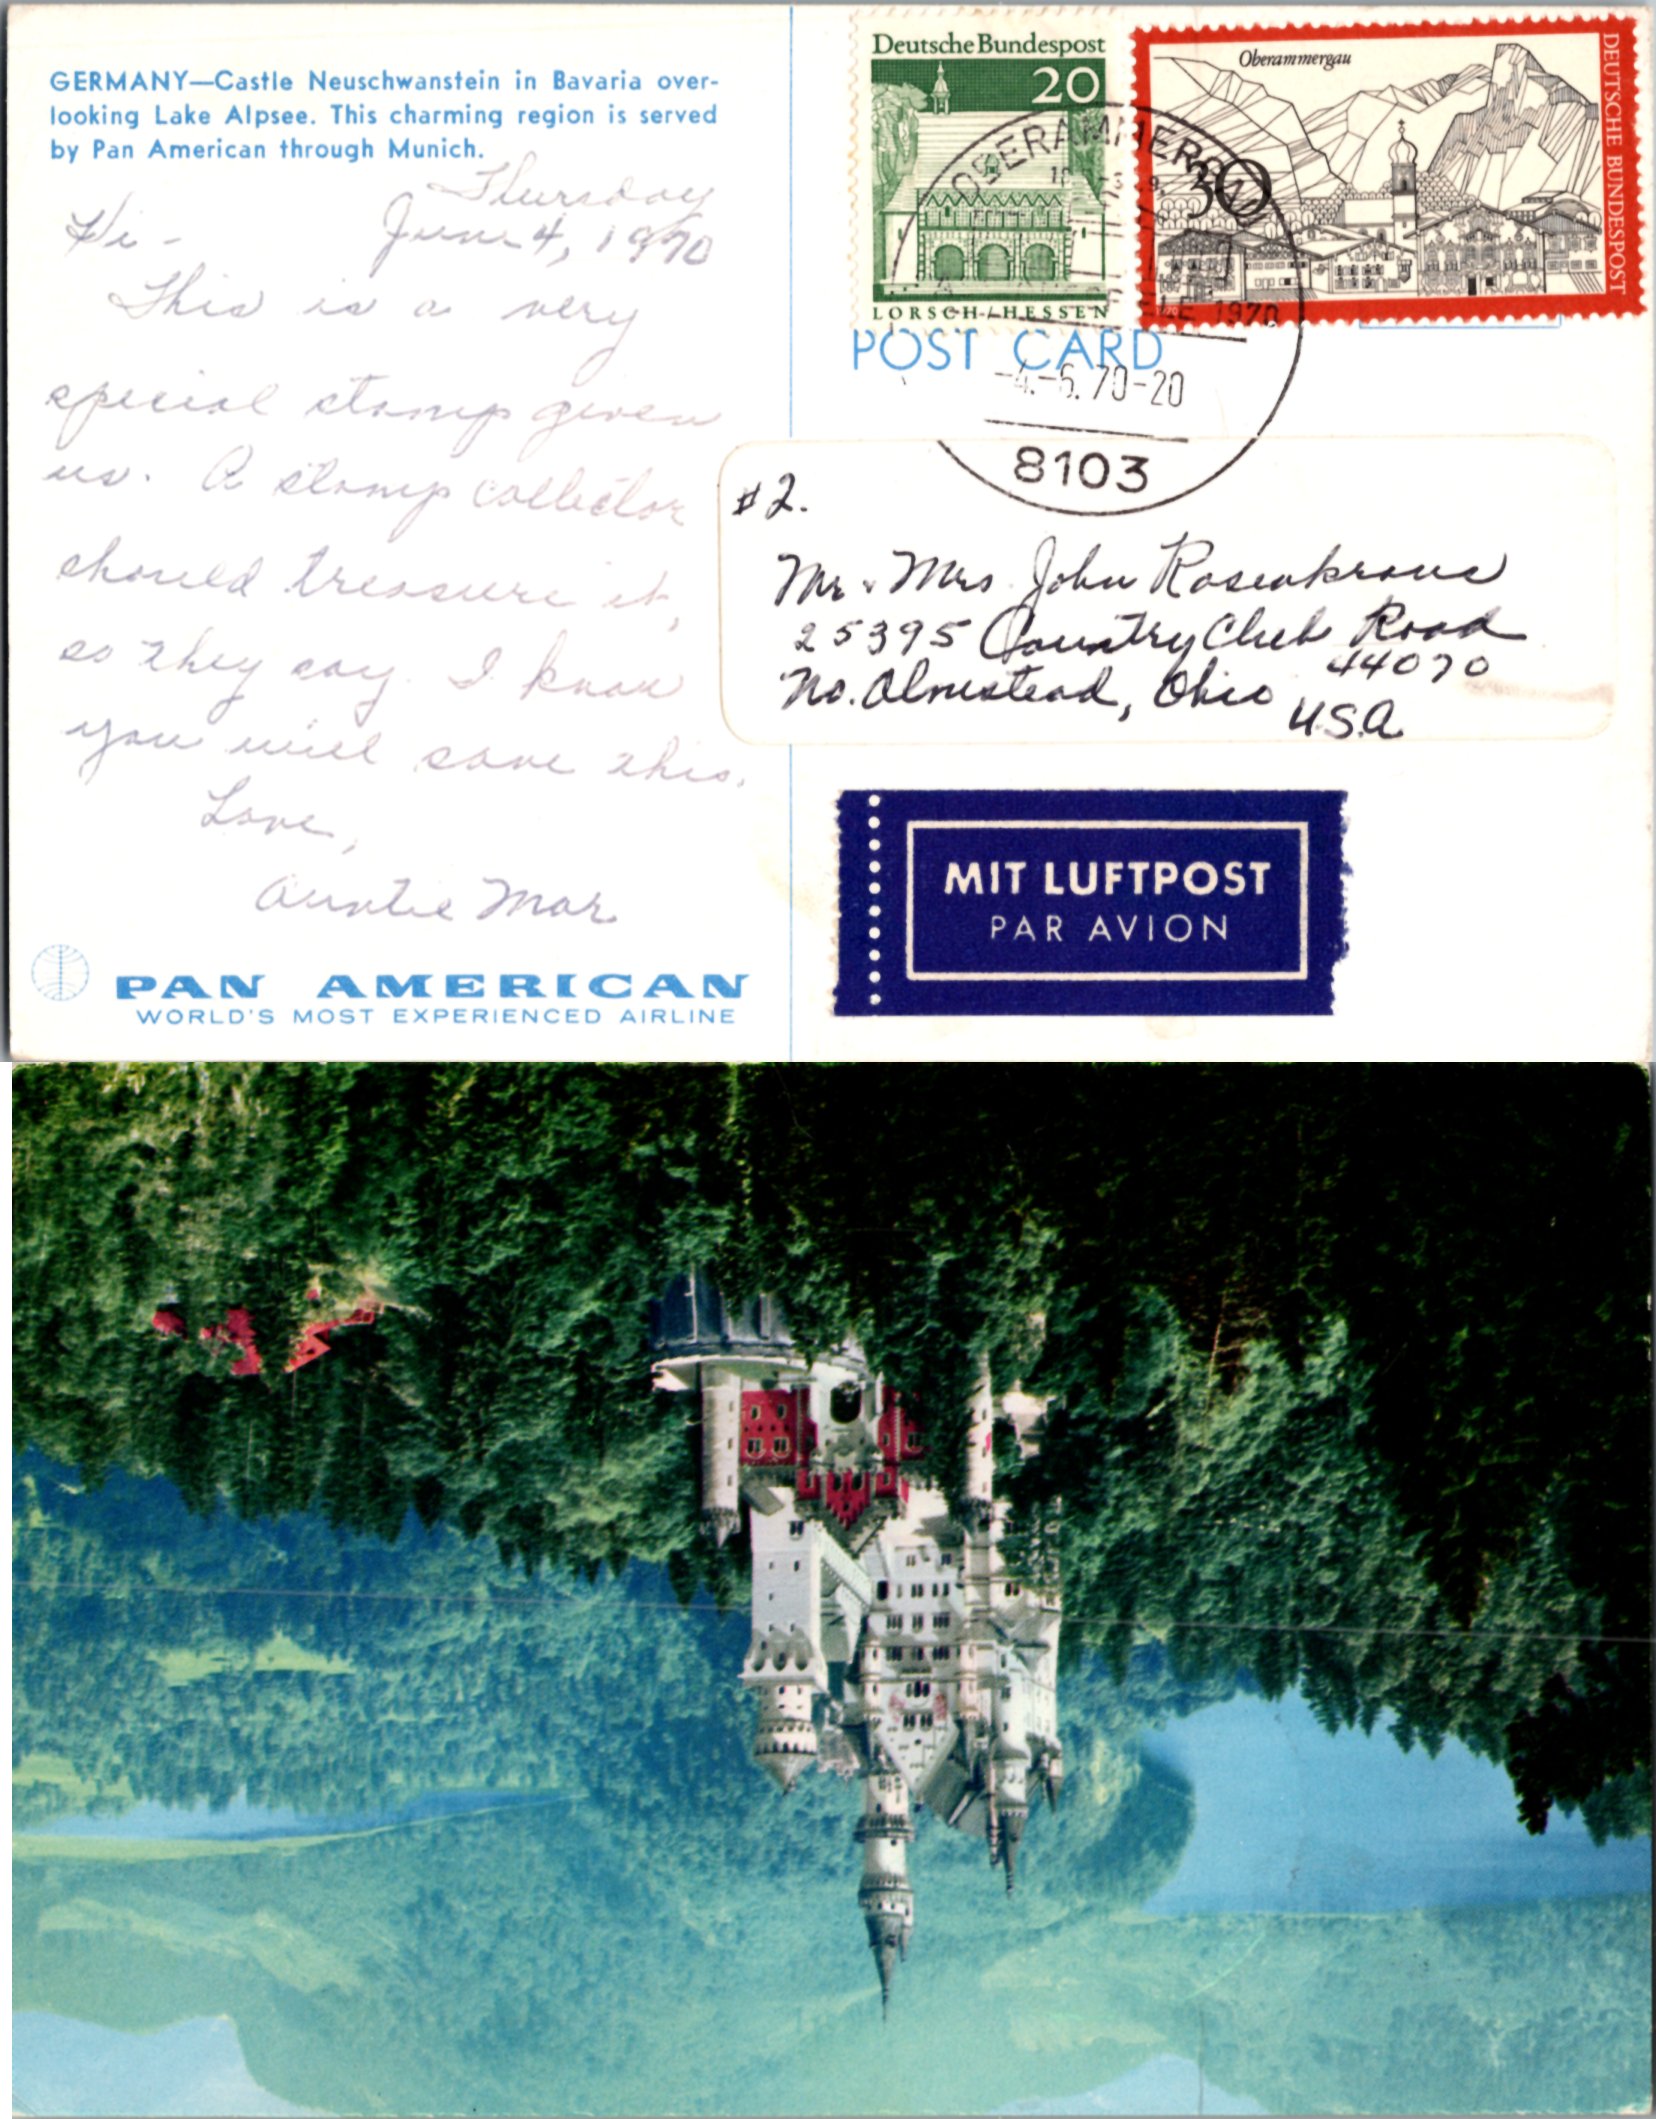 GERMANY—Castle Neuschwanstein in Bavaria over-
looking Lake Alpsee. This charming region is served
by Pan American through Munich.
Thursday
Hi - June 4, 1970
This is a very
special stamp given
us. A stamp collector
should treasure it,
so they say. I know
you will save this.
Love,
Auntie Mar
PAN AMERICAN
WORLD'S MOST EXPERIENCED AIRLINE
Deutsche Bundespost
20
LORSCH/HESSEN
Oberammergau
30
DEUTSCHE BUNDESPOST
1970
POST CARD
OBERAMMERGAU
1970
-4.-6.70-20
8103
#2.
Mr. & Mrs. John Rosenkrans
25395 Country Club Road
No. Olmstead, Ohio 44070
U.S.A.
MIT LUFTPOST
PAR AVION